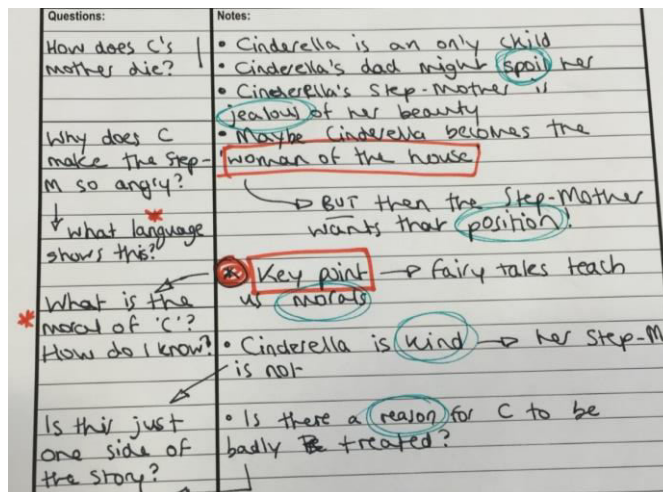 Questions:
How does C's
mother die?
Why does C
make the Step-
M so angry?
What language
shows this?
What is the
moral of 'C'?
How do I know?
Is this just
one side of
the story?
Notes:
• Cinderella is an only child
• Cinderella's dad might spoil her
• Cinderella's Step-Mother is
jealous of her beauty
• Maybe Cinderella becomes the
woman of the house
BUT then the Step-Mother
wants that position!
* Key point → fairy tales teach
us morals
• Cinderella is kind → her Step-M
is not
• Is there a reason for C to be
badly treated?